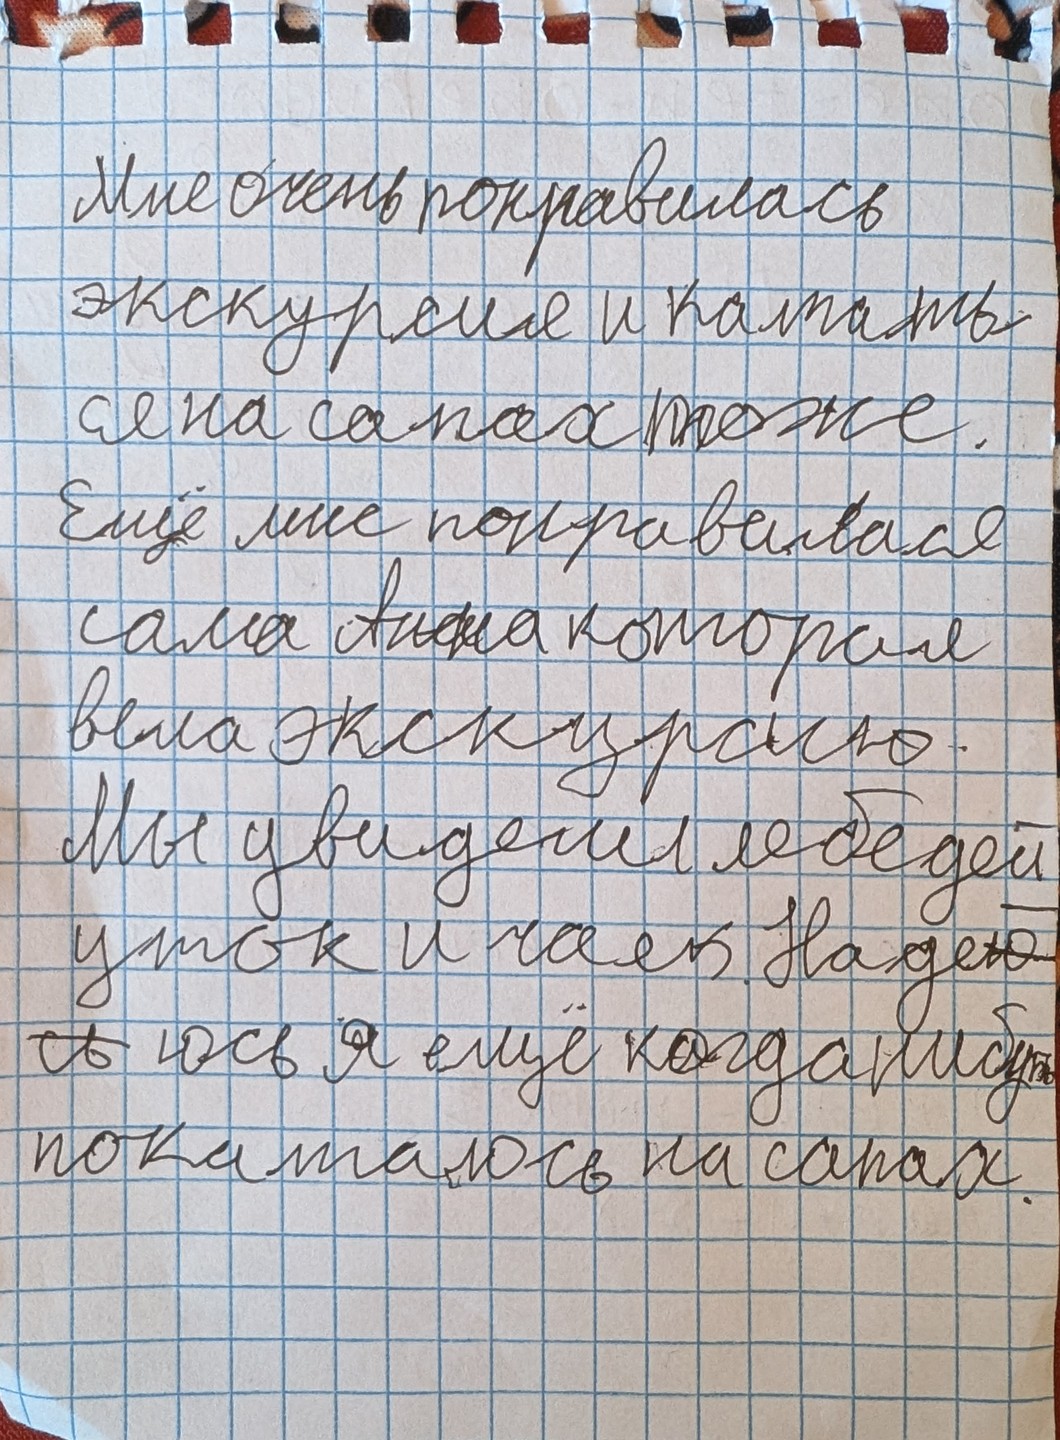 Мне очень понравилась
экскурсия и катать
ся на сапах тоже.
Ещё мне понравилася
сама Анна которая
вела экскурсию.
Мы увидели лебедей
уток и чаек. Наде
юсь я ещё когда нибуть
покатаюсь на сапах.